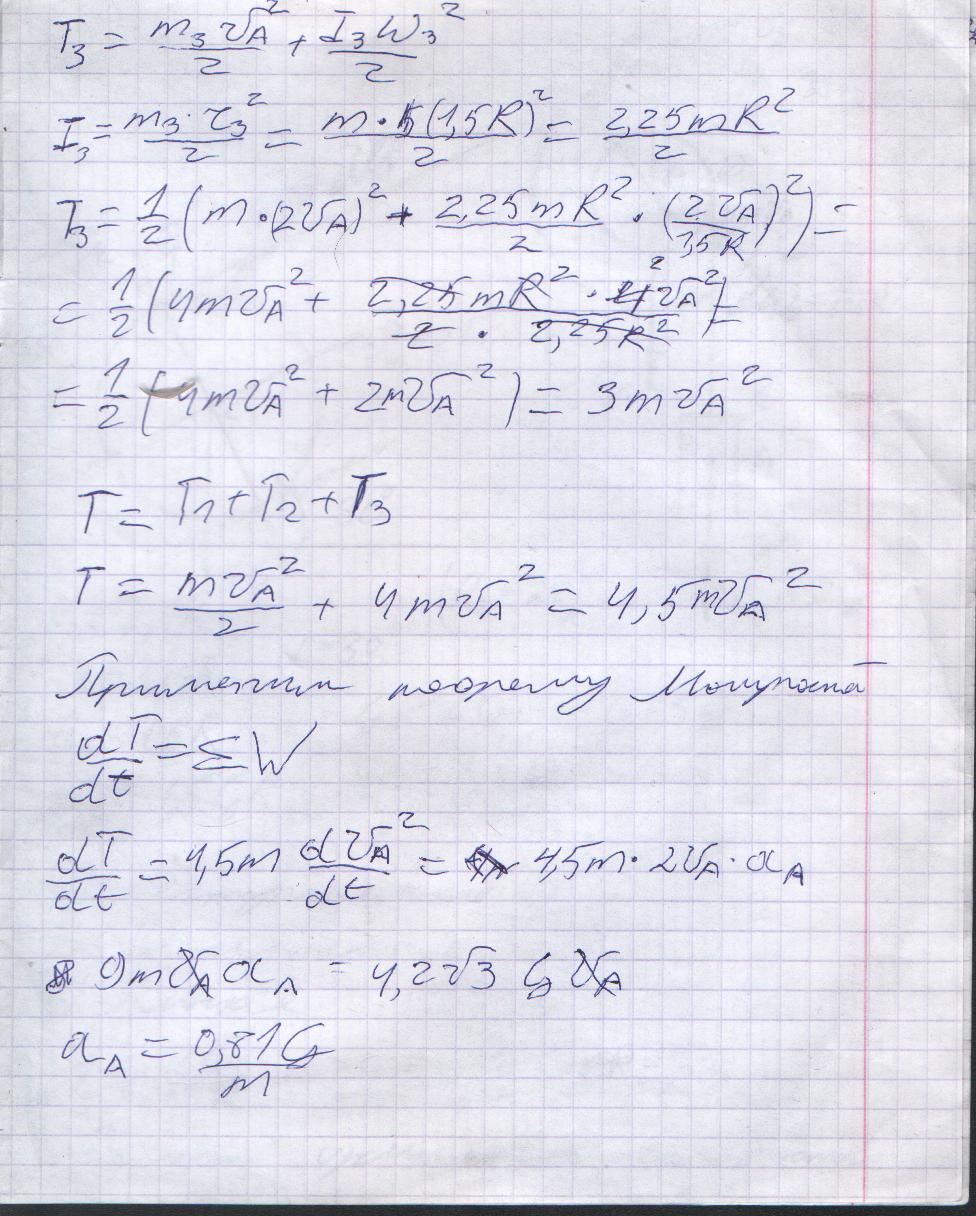 T₃ = m₃v_A²/2 + I₃ω₃²/2
I₃ = m₃·r₃²/2 = m·(1,5R)²/2 = 2,25mR²/2
T₃ = 1/2 (m·(2v_A)² + 2,25mR²/2 · (2v_A/1,5R)²) =
= 1/2 (4mv_A² + 2,25mR²·4²v_A²/2·2,25R²) =
= 1/2 (4mv_A² + 2mv_A²) = 3mv_A²
T = T₁ + T₂ + T₃
T = mv_A²/2 + 4mv_A² = 4,5mv_A²
Применим теорему
dT/dt = ΣW
dT/dt = 4,5m dv_A²/dt = 4,5m·2v_A·a_A
9mv_A a_A = 4,2√3 G v_A
a_A = 0,81G/m